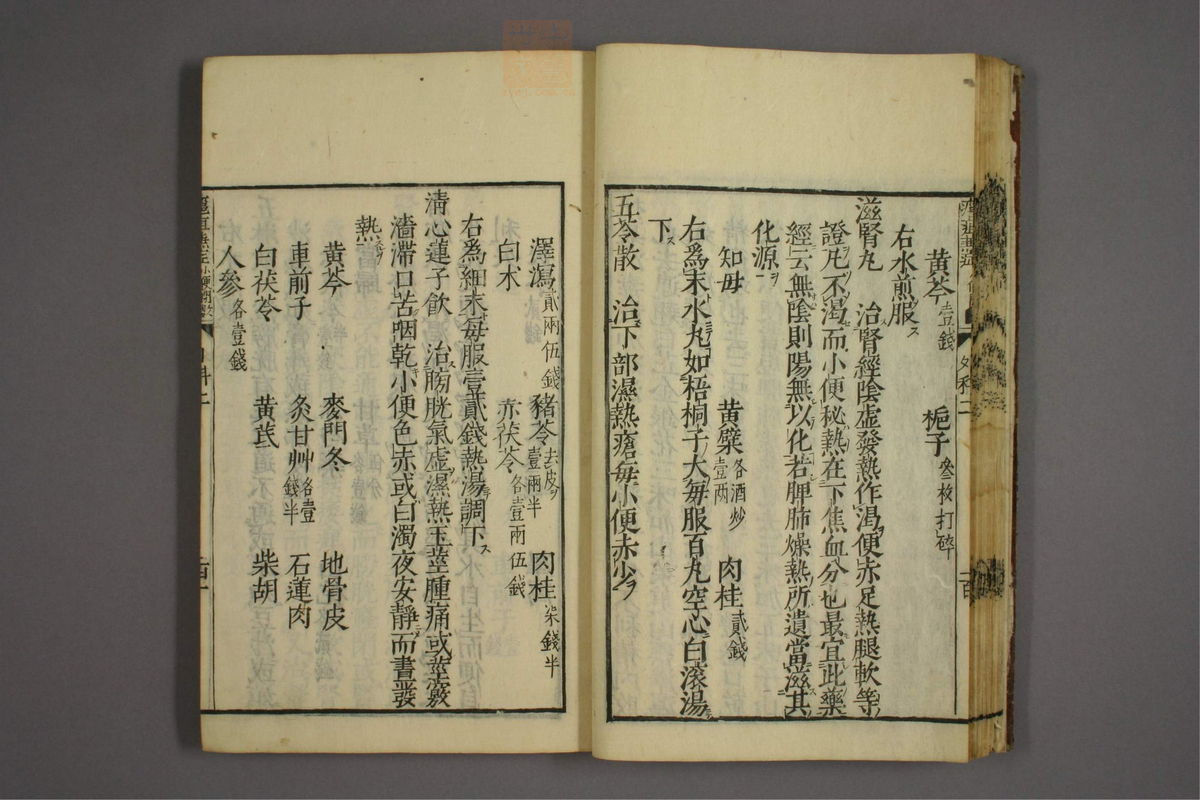 黄芩壹錢　梔子叄枚打碎
右水煎服ス
滋腎丸　治腎經陰虛發熱作渴便赤足熱腿軟等
證凡不渴而小便秘熱在下焦血分也最宜此藥
經云無陰則陽無以化若脾肺燥熱所遺當滋其
化源
知母　黄蘗各酒炒壹两　肉桂貳錢
右爲末水丸如梧桐子大毎服百丸空心白滚湯
下ス
五苓散　治下部濕熱瘡毎小便赤少
澤瀉貳兩伍錢　豬苓去皮壹兩半　肉桂柒錢半
白术　赤茯苓各壹兩伍錢
右爲細末毎服壹貳錢熱湯調下ス
清心蓮子飲　治膀胱氣虛濕熱玉莖腫痛或莖竅
濇滯口苦咽乾小便色赤或白濁夜安靜而晝發
熱
黄芩　麥門冬　地骨皮
車前子　灸甘艸各壹錢半　石蓮肉
白茯苓　黄茋　柴胡
人參各壹錢